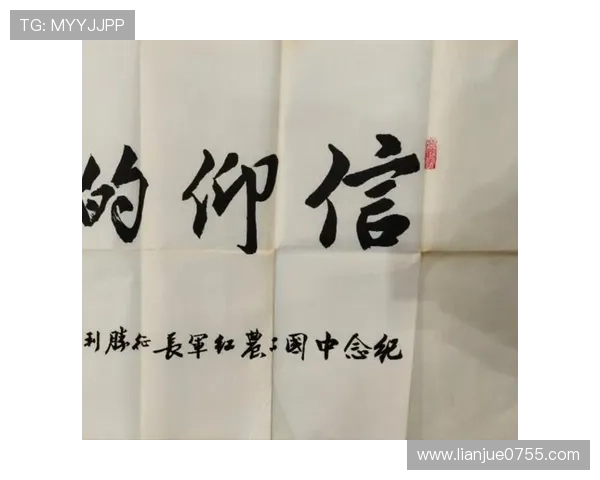 TG: MYYJJPP
信仰的
纪念中國工農红軍長征勝利
www.lianjue0755.com